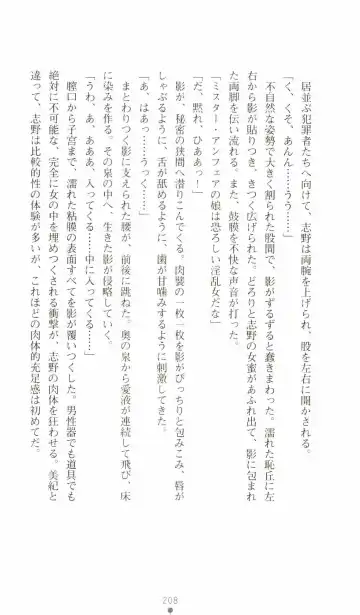 居並ぶ犯罪者たちへ向けて、志野は両腕を上げられ、股を左右に開かされる。
「く、くそ、あんん……うう……」
不自然な姿勢で大きく割られた股間で、影がずるずると蠢きまわった。濡れた恥丘に左
右から影が貼りつき、きつく広げられる。どろりと志野の女蜜があふれ出て、影に包まれ
た両脚を伝い流れる。また、鼓膜を不快な声音が打った。
「ミスター・アンフェアの娘は恐ろしい淫乱女だな」
「だ、黙れ、ひああっー！」
影が、秘密の狭間へ潜りこんでくる。肉襞の一枚一枚を影がぴっちりと包みこみ、唇が
しゃぶるように、舌が舐めるように、歯が甘噛みするように刺激してきた。
「あ、はあっ……うっく……」
まとわりつく影に支えられた腰が、前後に跳ねた。奥の泉から愛液が連続して飛び、床
に染みを作る。その泉の中へ、生きた影が侵略していく。
「うわ、あ、ああ、入ってくる……中に入ってくる……」
膣口から子宮まで、濡れた粘膜の表面すべてを影が覆いつくした。男性器でも道具でも
絶対に不可能な、完全に女の中を埋めつくされる衝撃が、志野の肉体を狂わせる。美紀と
違って、志野は比較的性の体験が多いが、これほどの肉体的充足感は初めてだ。
208